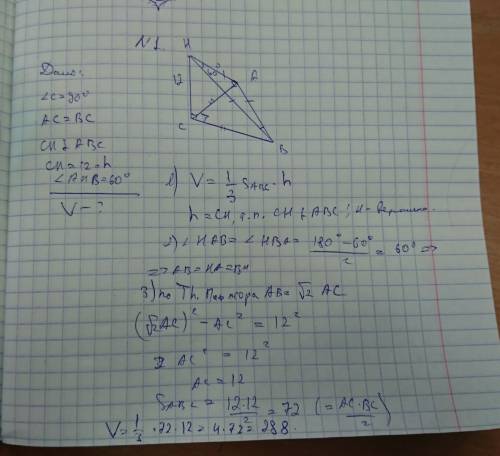 N1
Дано:
∠C=90°
AC=BC
CH ⊥ ABC
CH=12=h
∠AHB=60°
V-?
H
60°
12
A
C
B
1) V= 1/3 S_ABC · h
h=CH, т.к. CH ⊥ ABC; H- вершина.
2) ∠HAB= ∠HBA= (180°-60°)/2 = 60° =>
=> AB=HA=BH
3) по Th. Пифагора AB= √2 AC
(√2AC)² - AC² = 12²
AC² = 12²
AC = 12
S_ABC = 12·12/2 = 72 (= AC·BC/2)
V= 1/3 · 72 · 12 = 4·72 = 288.